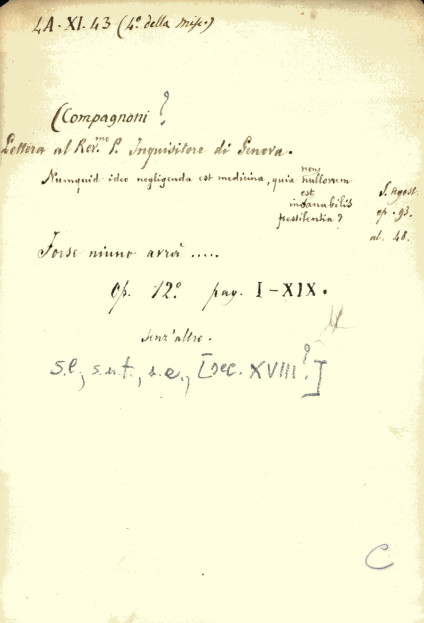 4A-XI.43 (4º della misc.)
(Compagnoni ?
Lettera al Rev.mo P. Inquisitore di Genova.
Numquid ideo negligenda est medicina, quia nonnullorum
est
insanabilis
pestilentia?
S. Agost.
ep. 93.
al. 48.
Forse niuno avrà .....
Op. 12º pag. I-XIX.
senz'altro.
s.l., s.n.t., s.e., [sec. XVIII?]
C